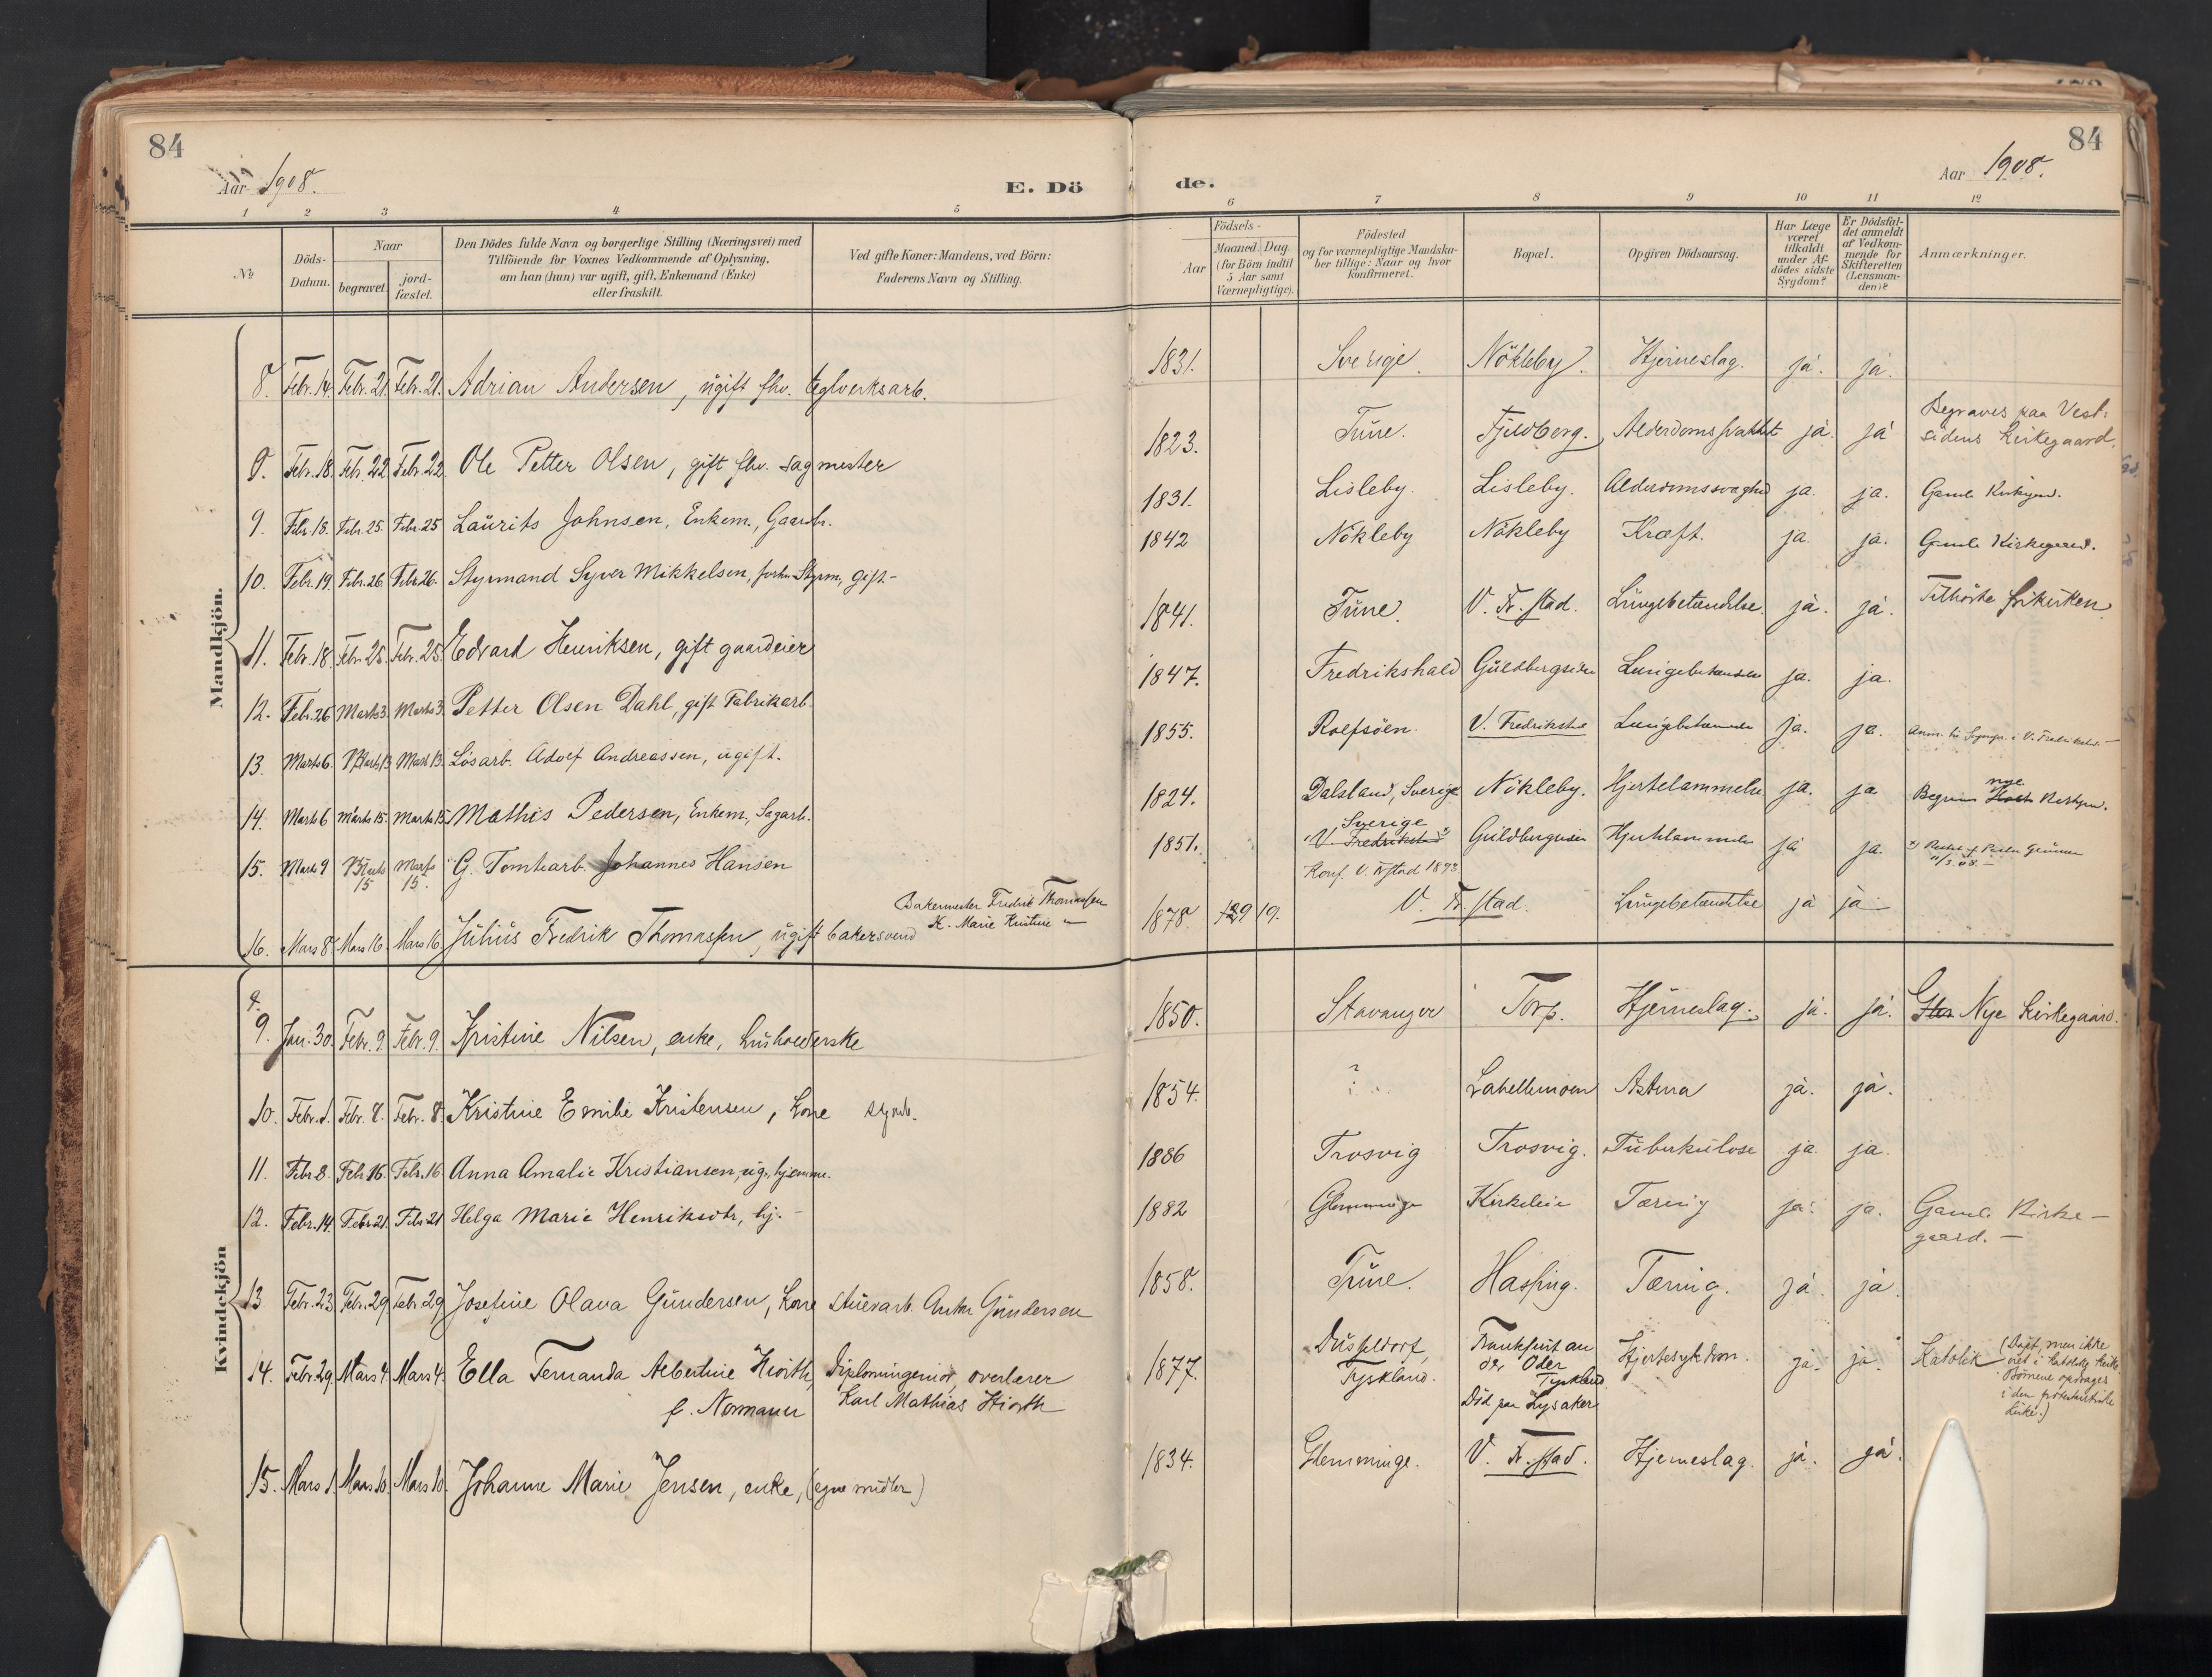 84
84
Aar 1908.
E. Dö
de.
Aar 1908.
1 2 3 4 5 6 7 8 9 10 11 12
№
Döds-
Datum.
Naar
begravet.
jord-
fæstet.
Den Dödes fulde Navn og borgerlige Stilling (Næringsvei) med
Tilföiende for Voxnes Vedkommende af Oplysning,
om han (hun) var ugift, gift, Enkemand (Enke)
eller fraskilt.
Ved gifte Koner: Mandens, ved Börn:
Faderens Navn og Stilling.
Födsels-
Aar
Maaned. Dag.
(for Börn indtil
5 Aar samt
Værnepligtige).
Födested
og for værnepligtige Mandska-
ber tillige: Naar og hvor
konfirmeret.
Bopæl.
Opgiven Dödsaarsag.
Har Læge
været
tilkaldt
under Af-
dödes sidste
Sygdom?
Er Dödsfal-
det anmeldt
af Vedkom-
mende for
Skifteretten
(Lensman-
den)?
Anmærkninger.
Mandkjön.
8. Febr. 14. Febr. 21. Febr. 21. Adrian Andersen, ugift fhv. teglverksarb. 1831. Sverige. Nökleby. Hjerneslag. ja. ja.
9. Febr. 18. Febr. 22 Febr. 22 Ole Petter Olsen, gift fhv. sagmester 1823. Tune. Fjeldberg. ja. ja Begraves paa Vest-
sidens Kirkegaard.
9. Febr. 18. Febr. 25. Febr. 25 Laurits Johnsen, Enkem., Gaardbr. 1831. Lisleby. Lisleby. Alderdomssvaghed ja. ja. Gamle
10. Febr. 19. Febr. 26. Febr. 26. Styrmand Syver Mikkelsen, forhv. Styrm., gift - 1842 Nökleby Nökleby Kræft. ja. ja. Gamle Kirkegaard.
11. Febr. 18. Febr. 25. Febr. 25. Edvard Henriksen, gift gaardeier 1841. Tune. V. Fr.stad. Lungebetændelse. ja. ja. Tilhörte frikirken
12. Febr. 26 Marts 3. Marts 3. Petter Olsen Dahl, gift Fabrikarb. 1847. Fredrikshald Guldbergsiden Lungebetændelse ja. ja.
13. Marts 6. Marts 13 Marts 13. Lösarb. Adolf Andreassen, ugift. 1855. Rolfsöen. V. Fredrikstad Lungebetændelse ja. ja.
14. Marts 6 Marts 15. Marts 15. Mathis Pedersen, Enkem., Sagarb. 1824. Dalsland, Sverige Nökleby. Hjertelammelse ja. ja nye
15. Marts 9 Marts 15 Marts 15. G. Tomtearb. Johannes Hansen 1851. Sverige
V. Fredrikstad Guldbergsiden Hjertelammelse ja ja.
Konf. V. Frstad 1893
Bakermester Fredrik Thomassen
K. Marie Kristine "
16. Mars 8. Mars 16. Mars 16. Julius Fredrik Thomassen, ugift bakersvend 1878. 19. V. Fr.stad. Lungebetændelse ja ja
Kvindekjön
9. Jan. 30. Febr. 9. Febr. 9. Kristine Nilsen, enke, husholderske 1850. Stavanger Torp. Hjerneslag. ja. ja. Nye Kirkegaard.
10. Febr. 1. Febr. 8. Febr. 8. Kristine Emilie Kristensen, kone 1854. ? Labellemoen Astma ja. ja.
11. Febr. 8. Febr. 16. Febr. 16 Anna Amalie Kristiansen, ug. hjemme. 1886 Trosvig Trosvig. Tuberkulose ja ja.
12. Febr. 14. Febr. 21. Febr. 21 Helga Marie Henriksdtr, hj. - 1882 Glemminge Tæring ja. ja. Gamle Kirke-
gaard. -
13 Febr. 23 Febr. 29 Febr. 29 Josefine Olava Gundersen, kone stuerarb. Anton Gundersen 1858. Tune. Hassing. Tæring. ja. ja.
14. Febr. 29. Mars 4. Mars 4. Ella Fernanda Albertine Hiorth, Diplomingeniör, overlærer 1877. Düsseldorf, Frankfurt an Hjertesykdom. ja. ja. Katolik (Döpt, men ikke
f. Normann Karl Mathias Hiorth Tyskland. der Oder viet i katolsk kirke.
Tyskland Börnene opdrages
Död paa Lysaker i den protestantiske
kirke.)
15. Mars 1. Mars 10. Mars 10. Johanne Marie Jensen, enke, (egne midler) 1834. Glemminge. V. Fr.stad. Hjerneslag. ja. ja.